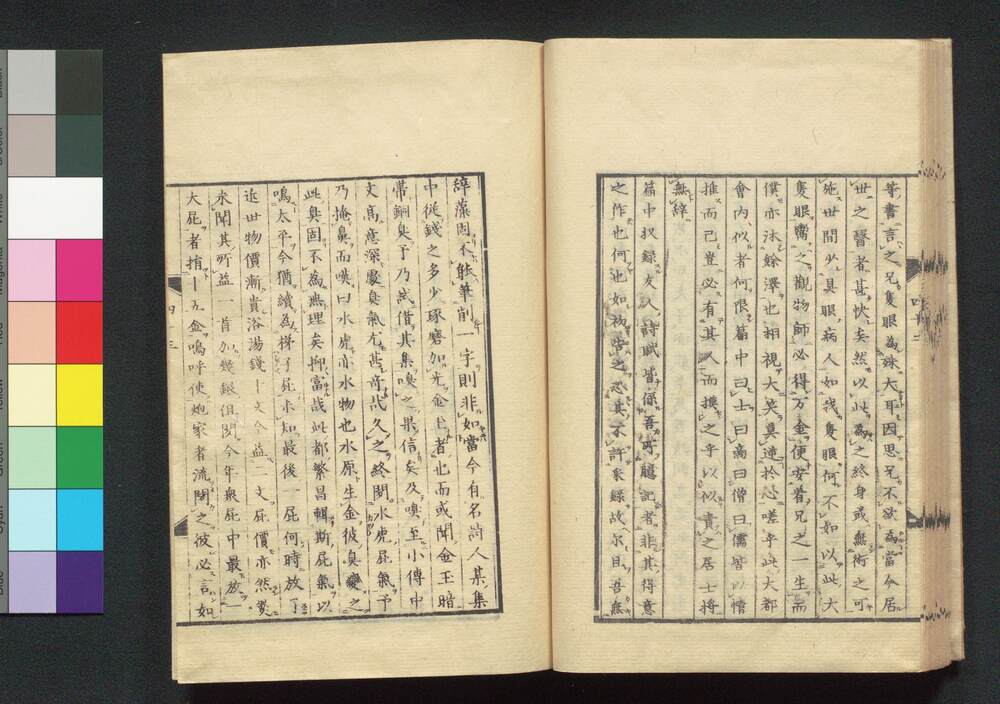 葊書言之兄隻眼為殊大耳因思兄不欲為當今居
世之瞽者甚快矣然以此為之終身或無術之可
施世間少具眼病人如我隻眼何不如以此大
隻眼鬻之觀物師必得万金使安着兄之一生而
僕亦沐餘澤也相視大笑莫逆於心嗟乎此大都
會內似者何限篇中曰士曰商曰僧曰儒皆以情
推而已豈必有其人而撰之乎以似責之居士將
無辞
篇中收錄友人詩賦皆係吾所臆記者非其得意
之作也何也如初告之恐其不許采錄故尔且吾無
辞藻固不能筆削一字則非如當今有名詩人某集
中從錢之多少琢磨加光金上者也而或聞金玉暗
帶銅臭予乃或借其集嗅之果信矣及嗅至小傳中
文高意深處臭氣尤甚奇哉久之終聞水虎屁氣予
乃掩鼻而嘆曰水虎亦水物也水原生金彼臭變之
此臭固不為無理矣抑富哉此都繁昌輯斯屁氣以
鳴太平今猶續為梯子屁未知最後一屁何時放了
近世物價漸貴浴湯錢十文今益二文屁價亦然
来聞其所益一首加幾銀但聞今年眾屁中最放
大屁者捐五金嗚呼使炮家者流聞之彼必言如
四十三